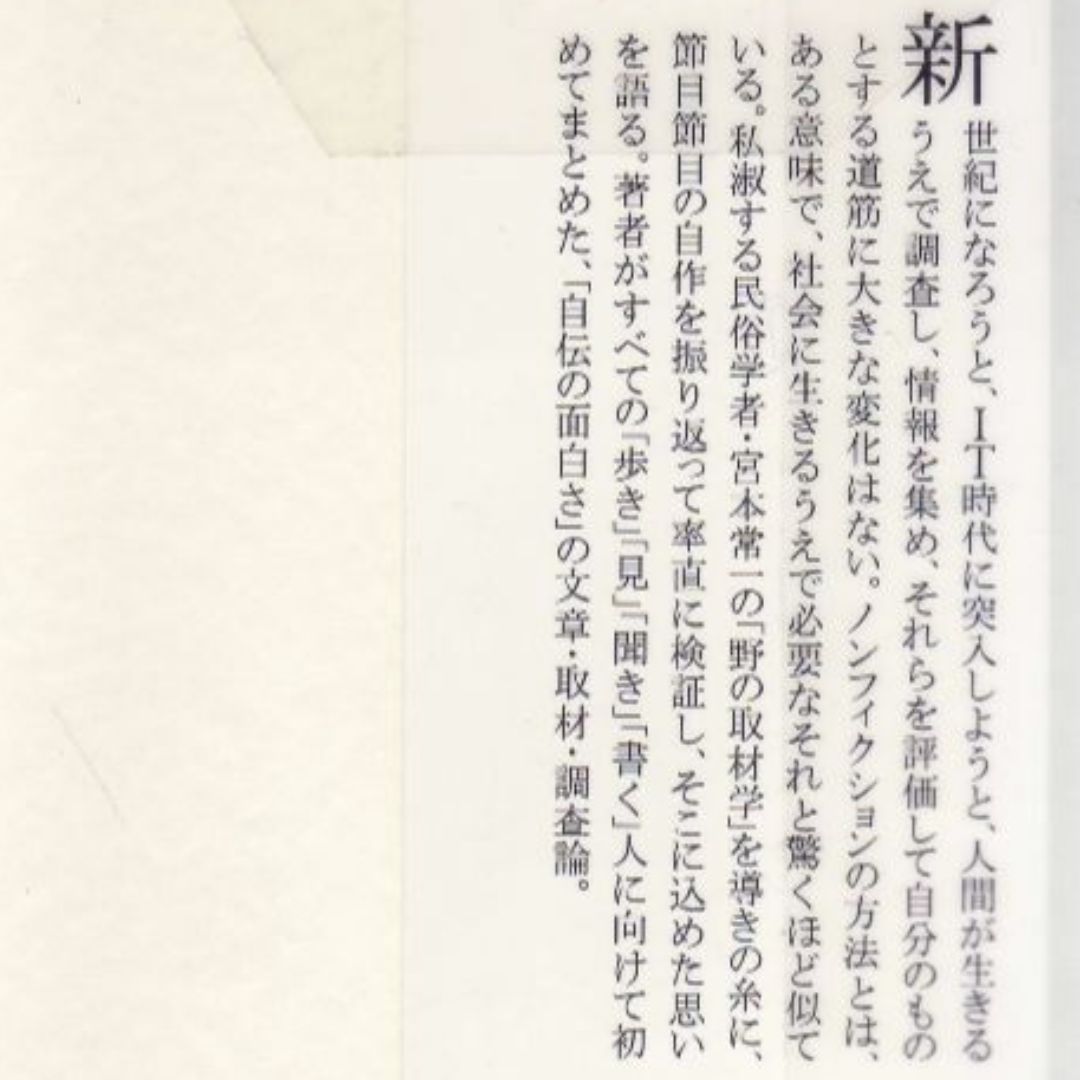 新世紀になろうと、IT時代に突入しようと、人間が生きる
うえで調査し、情報を集め、それらを評価して自分のもの
とする道筋に大きな変化はない。ノンフィクションの方法とは、
ある意味で、社会に生きるうえで必要なそれと驚くほど似て
いる。私淑する民俗学者・宮本常一の「野の取材学」を導きの糸に、
節目節目の自作を振り返って率直に検証し、そこに込めた思い
を語る。著者がすべての「歩き」「見」「聞き」「書く」人に向けて初
めてまとめた、「自伝の面白さ」の文章・取材・調査論。